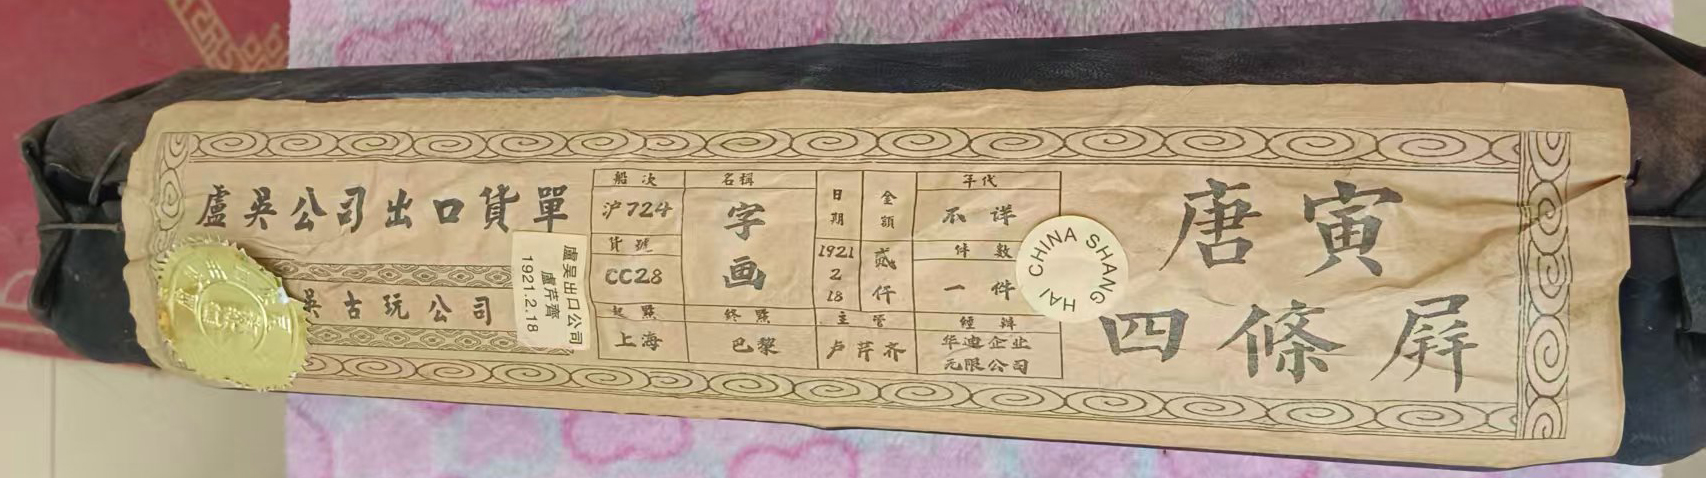 盧吳公司出口貨單
吳古玩公司
盧吴出口公司
盧芹齋
1921.2.18
船次
沪724
貨號
CC28
起點
上海
名稱
字画
終點
巴黎
日期
1921
2
18
金額
贰仟
主管
卢芹齐
年代
不详
件數
一件
經辦
华迪企业
无限公司
CHINA SHANG HAI
唐寅
四條屏